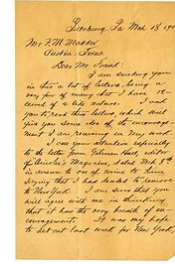 Pittsburg, Pa Mch 18, 190
Mr F. W. 
Austin, Texas
Dear Mr 
I am sending you
in this a lot of letters, being a
very few of many that I have re-
ceived of a late nature. I want
you to read these letters, which will
give you some idea of the encourage-
ment I am receiving in my work.
I call your attention especially
to the letter from Gilman Hall, editor
of Ainslie's Magazine, dated Mch 8th
in answer to one of mine to him
saying that I had decided to remove
to New York. I am sure that you
will agree with me in thinking
that it has the very breath of en-
couragement. It was my hope
to set out last week for New York,